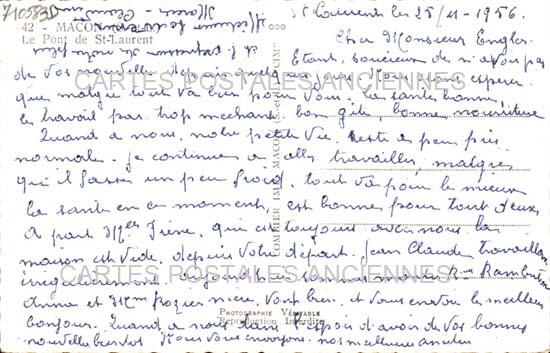 710583D
42 - MACON
Le Pont de St-Laurent
St Laurent le 25/11-1956.
Cher Monsieur Engler.
Etant, soucieux de n'avoir pas
de vos nouvelles depuis quelques jours Nous espérer
que malgré tout va bien pour Vous. La santé bonne,
le travail pas trop méchant bon gite bonne nourriture
Quand a nous, notre petite Vie reste a peu près
normale. Je continue a aller travailler, malgrés
qu'il fasse un peu froid, tout va pour le mieux
La santé en ce moment, est bonne pour tout deux
A part Mr Frène, qui est toujours avec nous la
maison est vide, depuis Votre départ. Jean Claude travaillan
irrégulièrement, Rue Rambuteau
et Mme mère, vont bien, et Vous envoi le meilleur
bonjour. Quand a nous dans l'espoir d'avoir de vos bonnes
nouvelles bientot Nous Vous envoyons nos meilleures amitiés
COMBIER IMP. MACON (S.-et-L.) "CIM"
PHOTOGRAPHIE VÉRITABLE
Reproduction Interdite
CARTES POSTALES ANCIENNES
CARTES POSTALES ANCIENNES